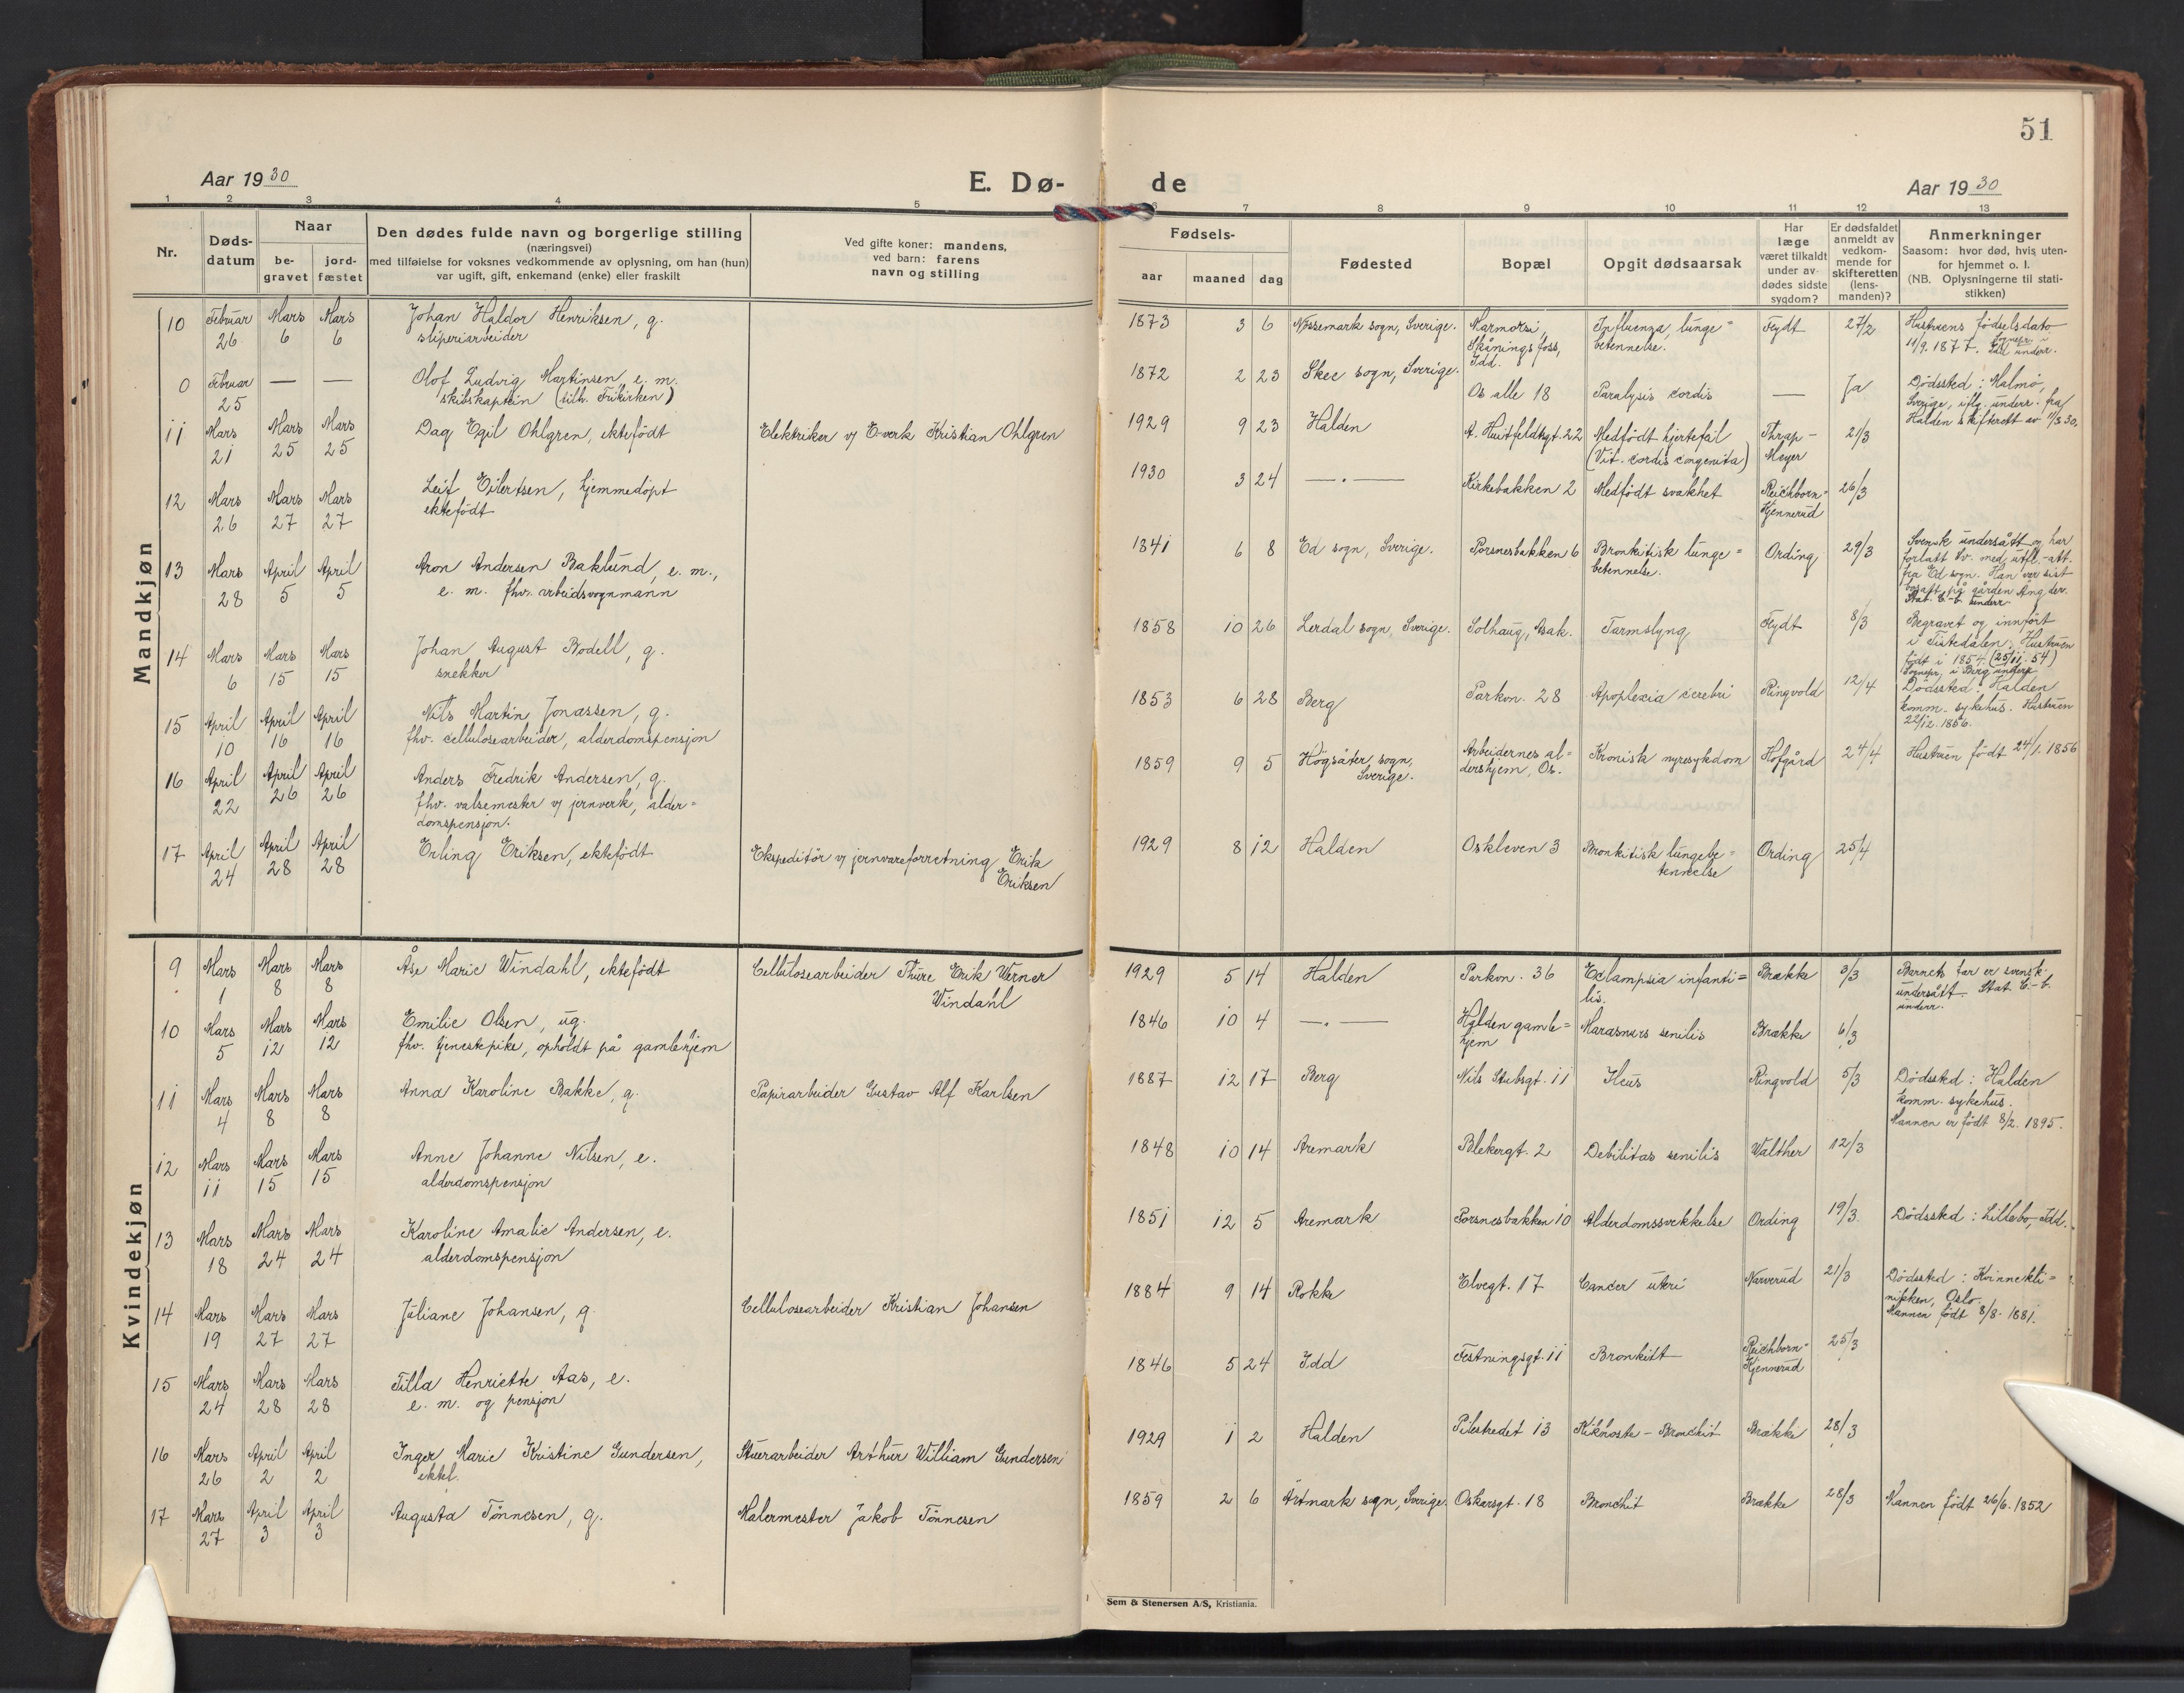 51
Aar 1930
E. Dø-
de
Aar 1930
1 2 3 4 5 6 7 8 9 10 11 12 13
Nr.
Døds-
datum
Naar
be-
gravet
jord-
fæstet
Den dødes fulde navn og borgerlige stilling
(næringsvei)
med tilføielse for voksnes vedkommende av oplysning, om han (hun)
var ugift, gift, enkemand (enke) eller fraskilt
Ved gifte koner: mandens,
ved barn: farens
navn og stilling
Fødsels-
aar
maaned
dag
Fødested
Bopæl
Opgit dødsaarsak
Har
læge
været tilkaldt
under av-
dødes sidste
sygdom?
Er dødsfaldet
anmeldt av
vedkom-
mende for
skifteretten
(lens-
manden)?
Anmerkninger
Saasom: hvor død, hvis uten-
for hjemmet o. l.
(NB. Oplysningerne til stati-
stikken)
Mandkjøn
10 Februar 26 Mars 6 Mars 6
Johan Haldor Henriksen, g.
sliperiarbeider
1873 3 6 Nössemark sogn, Sverige.
Skånings foss,
Idd.
Influenza, lunge=
betennelse.
Feydt 27/2
Hustruens födselsdato
11/9. 1877.
0 Februar 25 — —
Olof Ludvig Martinsen, e. m.
skibskaptein (tilh. Frikirken)
1872 2 23 Skee sogn, Sverige.
Os alle 18 Paralysis cordis — Ja
Dödssted: Malmö,
Sverige, iflg. underr. fra
Halden skifterett av 11/3 30.
11 Mars 21 Mars 25 Mars 25
Dag Egil Ohlgren, ektefödt
Elektriker v/ E-verk Kristian Ohlgren
1929 9 23 Halden
A. Huitfeldtsgt. 22 Medfödt hjertefeil
(Vit. cordis congenita)
Thrap-
Meyer
21/3
12 Mars 26 Mars 27 Mars 27
Leif Eilertsen, hjemmedöpt
ektefödt
1930 3 24 —.—
Kirkebakken 2 Medfödt svakhet
Reichborn=
Kjennerud
26/3
13 Mars 28 April 5 April 5
Aron Andersen Baklund, e. m.,
e. m. fhv. arbeidsvognmann
1841 6 8 Ed sogn, Sverige.
Porsnesbakken 6 Bronkitisk lunge=
betennelse.
Ording 29/3
Svensk undersått og har
forlatt Sv. med utfl.-att.
fra Ed sogn. Han var sist
bosatt på gården
Stat. C.-b. underr.
14 Mars 6 Mars 15 Mars 15
Johan August Bodell, g.
snekker
1858 10 26 Lerdal sogn, Sverige.
Solhaug, Asak. Tarmslyng Feydt 8/3
Begravet og innfört
i Tistedalen. Hustruen
födt i 1854. (25/11. 54)
Sognepr. i Berg underr.
15 April 10 April 16 April 16
Nils Martin Jonassen, g.
fhv. cellulosearbeider, alderdomspensjon
1853 6 28 Berg
Parkvn. 28 Apoplexia cerebri Ringvold 12/4
Dödssted: Halden
komm. sykehus. Hustruen
22/12. 1856.
16 April 22 April 26 April 26
Anders Fredrik Andersen, g.
fhv. valsemester v/ jernverk, alder=
domspensjon.
1859 9 5 Högsäter, sogn,
Sverige.
Arbeidernes al=
dershjem, Os.
Kronisk nyresykdom Hofgård 24/4
Hustruen födt 24/1. 1856
17 April 24 April 28 April 28
Erling Eriksen, ektefödt
Ekspeditör v/ jernvareforretning Erik
Eriksen
1929 8 12 Halden
Oskleven 3 Bronkitisk lungebe=
tennelse
Ording 25/4
Kvindekjøn
9 Mars 1 Mars 8 Mars 8
Åse Marie Windahl, ektefödt
Cellulosearbeider Thure Erik Werner
Windahl
1929 5 14 Halden
Parkvn. 36 Eclampsia infanti=
lis.
Brække 3/3
Barnets far er svensk
undersått. Stat. C.-b.
underr.
10 Mars 5 Mars 12 Mars 12
Emilie Olsen, ug.
fhv. tjenestepike, opholdt på gamlehjem
1846 10 4 —.—
Halden gamle=
hjem
Marasmus senilis Brække 6/3
11 Mars 4 Mars 8 Mars 8
Anna Karoline Bakke, g.
Papirarbeider Gustav Alf Karlsen
1887 12 17 Berg
Nils Stubsgt. 11 Ileus Ringvold 5/3
Dödssted: Halden
komm. sykehus.
Mannen er födt 8/2. 1895.
12 Mars 11 Mars 15 Mars 15
Anne Johanne Nilsen, e.
alderdomspensjon
1848 10 14 Aremark
Blekergt. 2 Debilitas senilis Walther 12/3
13 Mars 18 Mars 24 Mars 24
Karoline Amalie Andersen, e.
alderdomspensjon
1851 12 5 Aremark
Porsnesbakken 10 Alderdomssvekkelse Ording 19/3
Dödssted: Lillebo, Idd.
14 Mars 19 Mars 27 Mars 27
Juliane Johansen, g.
Cellulosearbeider Kristian Johansen
1884 9 14 Rokke
Elvegt. 17 Cancer uteri Narverud 21/3
Dödssted: Kvinnekli=
nikken, Oslo.
Mannen födt 8/8. 1881.
15 Mars 24 Mars 28 Mars 28
Tilla Henriette Aas, e.
e. m. og pensjon
1846 5 24 Idd
Festningsgt. 11 Bronkitt
Reichborn=
Kjennerud
25/3
16 Mars 26 April 2 April 2
Inger Marie Kristine Gundersen,
ektef.
Stuerarbeider Arthur William Gundersen
1929 1 2 Halden
Pilestredet 13 Kikhoste - Bronchit Brække 28/3
17 Mars 27 April 3 April 3
Augusta Tönnesen, g.
Malermester Jakob Tönnesen
1859 2 6 Ärtmark sogn, Sverige.
Oskarsgt. 18 Bronchit Brække 28/3
Mannen födt 26/6. 1852
Sem & Stenersen A/S, Kristiania.